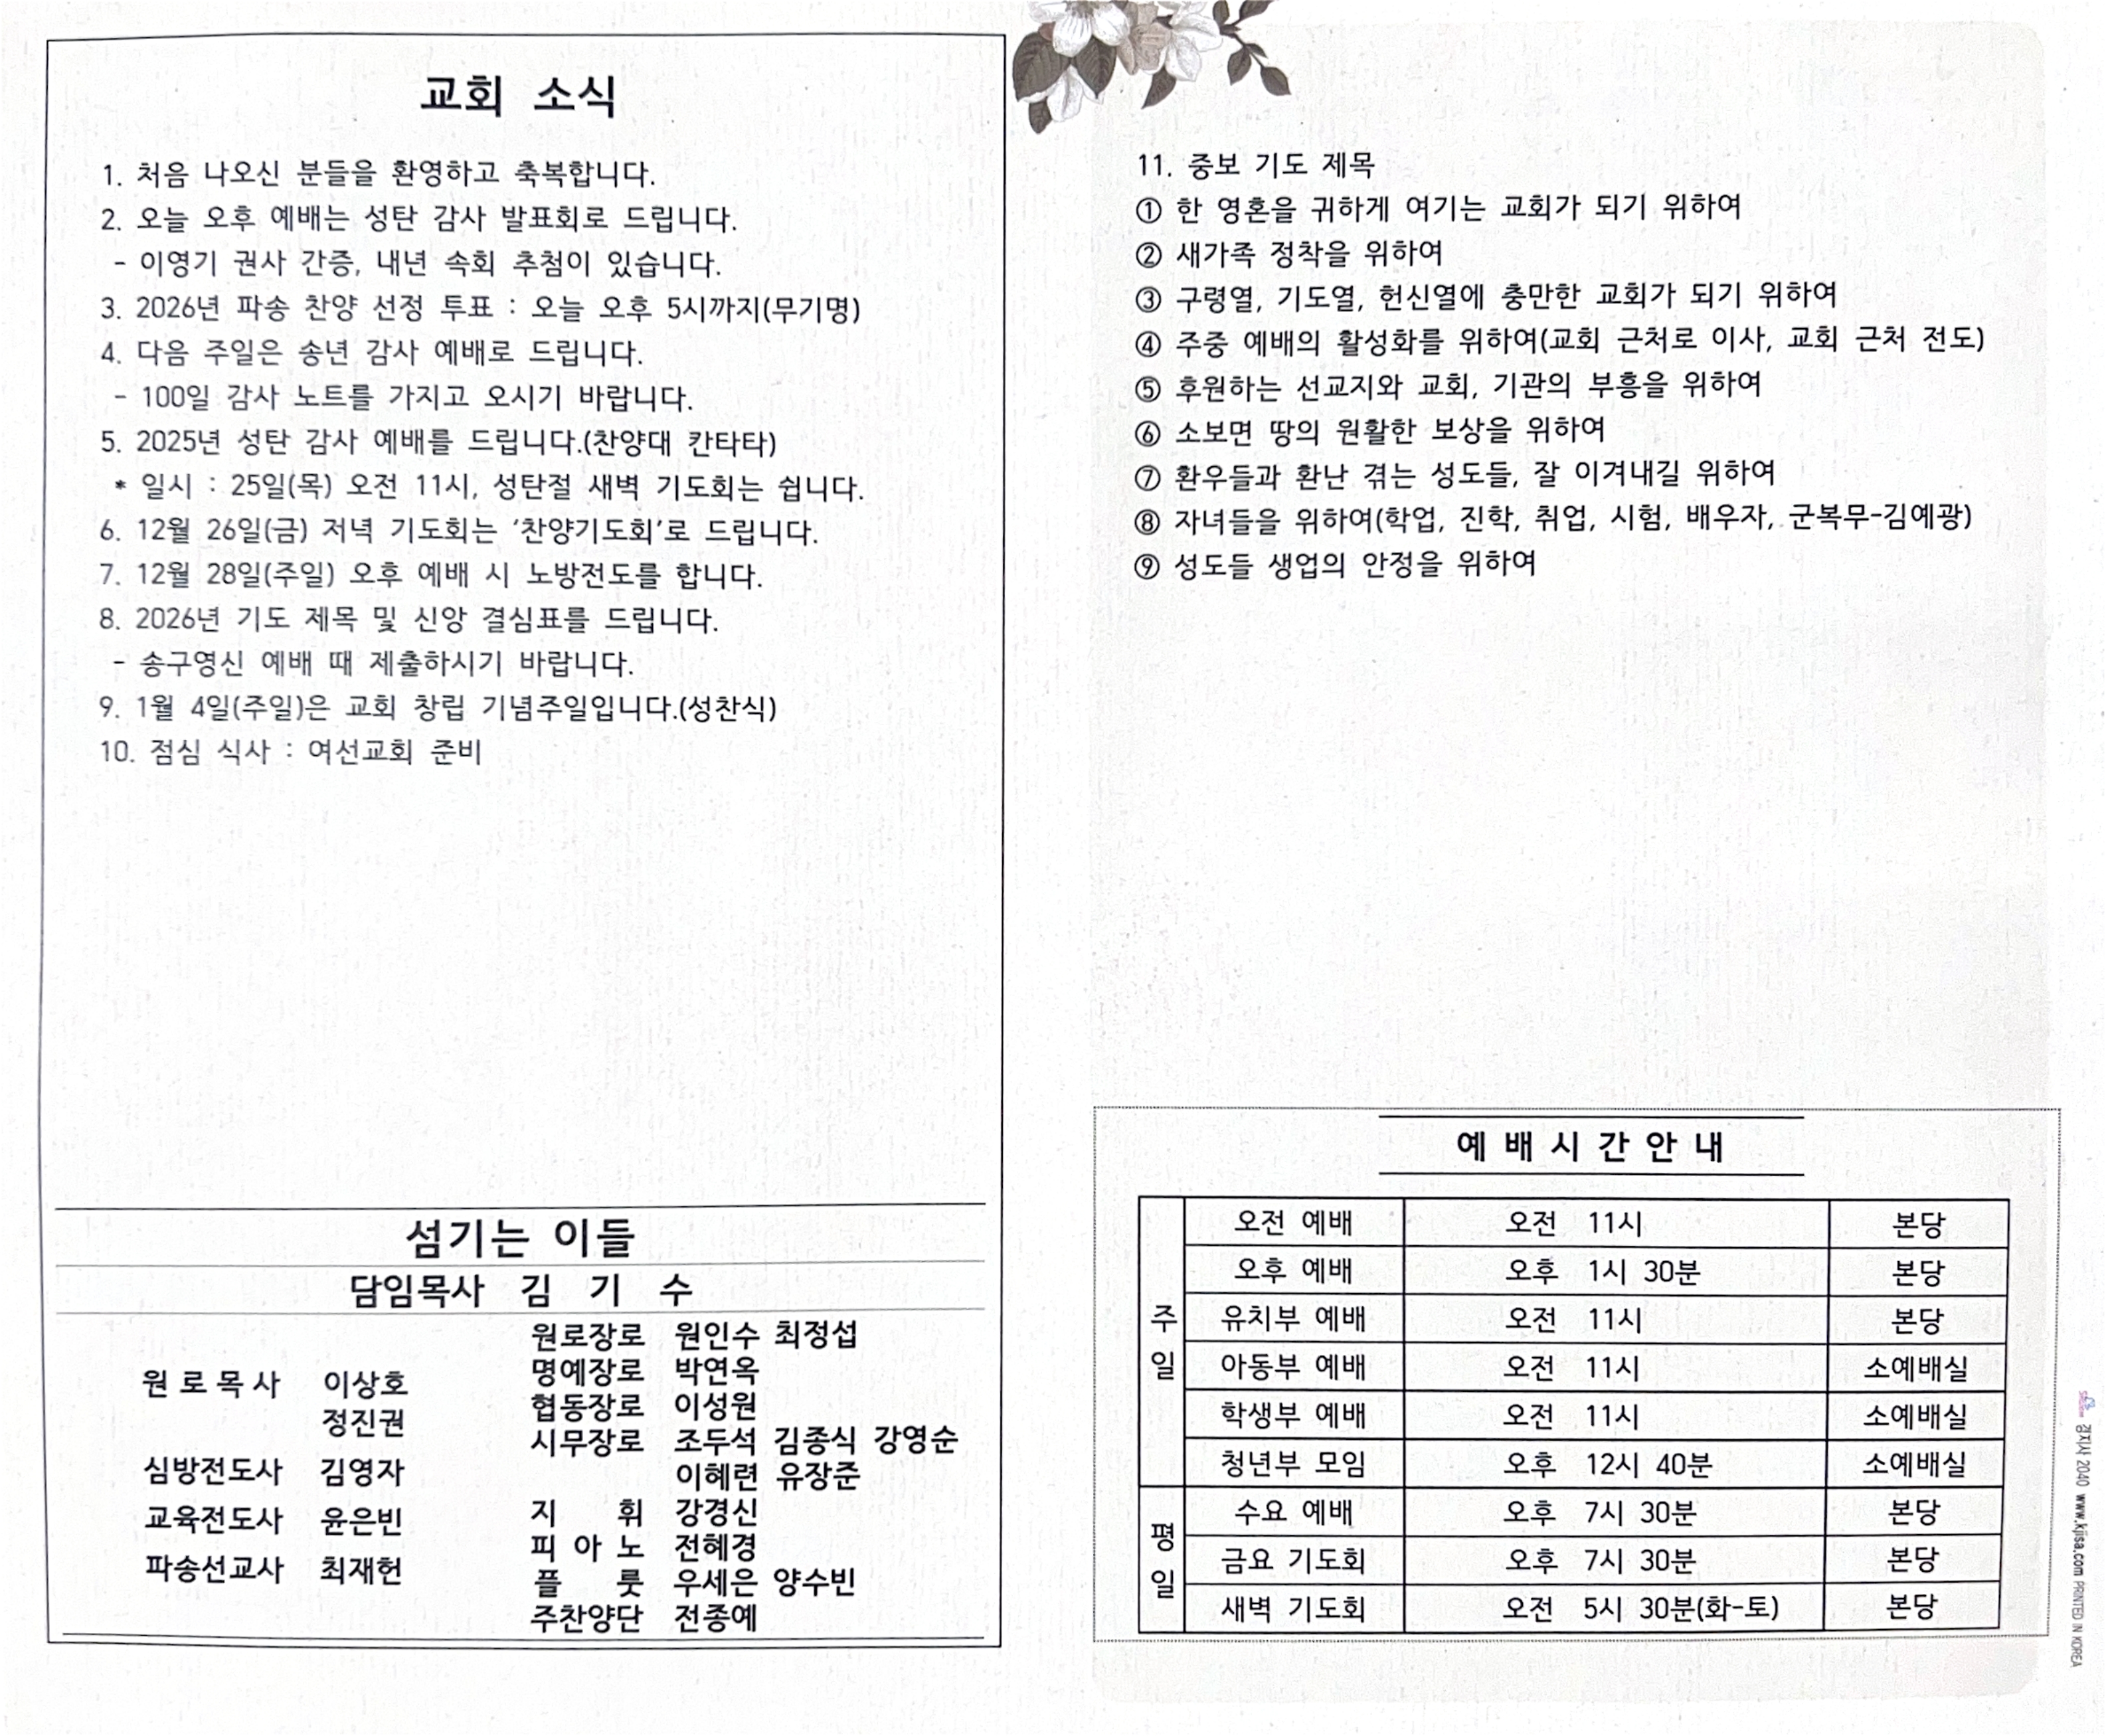 교회 소식
1. 처음 나오신 분들을 환영하고 축복합니다.
2. 오늘 오후 예배는 성탄 감사 발표회로 드립니다.
- 이영기 권사 간증, 내년 속회 추첨이 있습니다.
3. 2026년 파송 찬양 선정 투표 : 오늘 오후 5시까지(무기명)
4. 다음 주일은 송년 감사 예배로 드립니다.
- 100일 감사 노트를 가지고 오시기 바랍니다.
5. 2025년 성탄 감사 예배를 드립니다.(찬양대 칸타타)
* 일시 : 25일(목) 오전 11시, 성탄절 새벽 기도회는 쉽니다.
6. 12월 26일(금) 저녁 기도회는 '찬양기도회'로 드립니다.
7. 12월 28일(주일) 오후 예배 시 노방전도를 합니다.
8. 2026년 기도 제목 및 신앙 결심표를 드립니다.
- 송구영신 예배 때 제출하시기 바랍니다.
9. 1월 4일(주일)은 교회 창립 기념주일입니다.(성찬식)
10. 점심 식사 : 여선교회 준비
섬기는 이들
담임목사 김 기 수
원 로 목 사 이상호
정진권
심방전도사 김영자
교육전도사 윤은빈
파송선교사 최재헌
원로장로 원인수 최정섭
명예장로 박연옥
협동장로 이성원
시무장로 조두석 김종식 강영순
이혜련 유장준
지 휘 강경신
피 아 노 전혜경
플 룻 우세은 양수빈
주찬양단 전종예
11. 중보 기도 제목
① 한 영혼을 귀하게 여기는 교회가 되기 위하여
② 새가족 정착을 위하여
③ 구령열, 기도열, 헌신열에 충만한 교회가 되기 위하여
④ 주중 예배의 활성화를 위하여(교회 근처로 이사, 교회 근처 전도)
⑤ 후원하는 선교지와 교회, 기관의 부흥을 위하여
⑥ 소보면 땅의 원활한 보상을 위하여
⑦ 환우들과 환난 겪는 성도들, 잘 이겨내길 위하여
⑧ 자녀들을 위하여(학업, 진학, 취업, 시험, 배우자, 군복무-김예광)
⑨ 성도들 생업의 안정을 위하여
예 배 시 간 안 내
주일
오전 예배 오전 11시 본당
오후 예배 오후 1시 30분 본당
유치부 예배 오전 11시 본당
아동부 예배 오전 11시 소예배실
학생부 예배 오전 11시 소예배실
청년부 모임 오후 12시 40분 소예배실
평일
수요 예배 오후 7시 30분 본당
금요 기도회 오후 7시 30분 본당
새벽 기도회 오전 5시 30분(화-토) 본당
경지사 2040 www.kjisa.com PRINTED IN KOREA